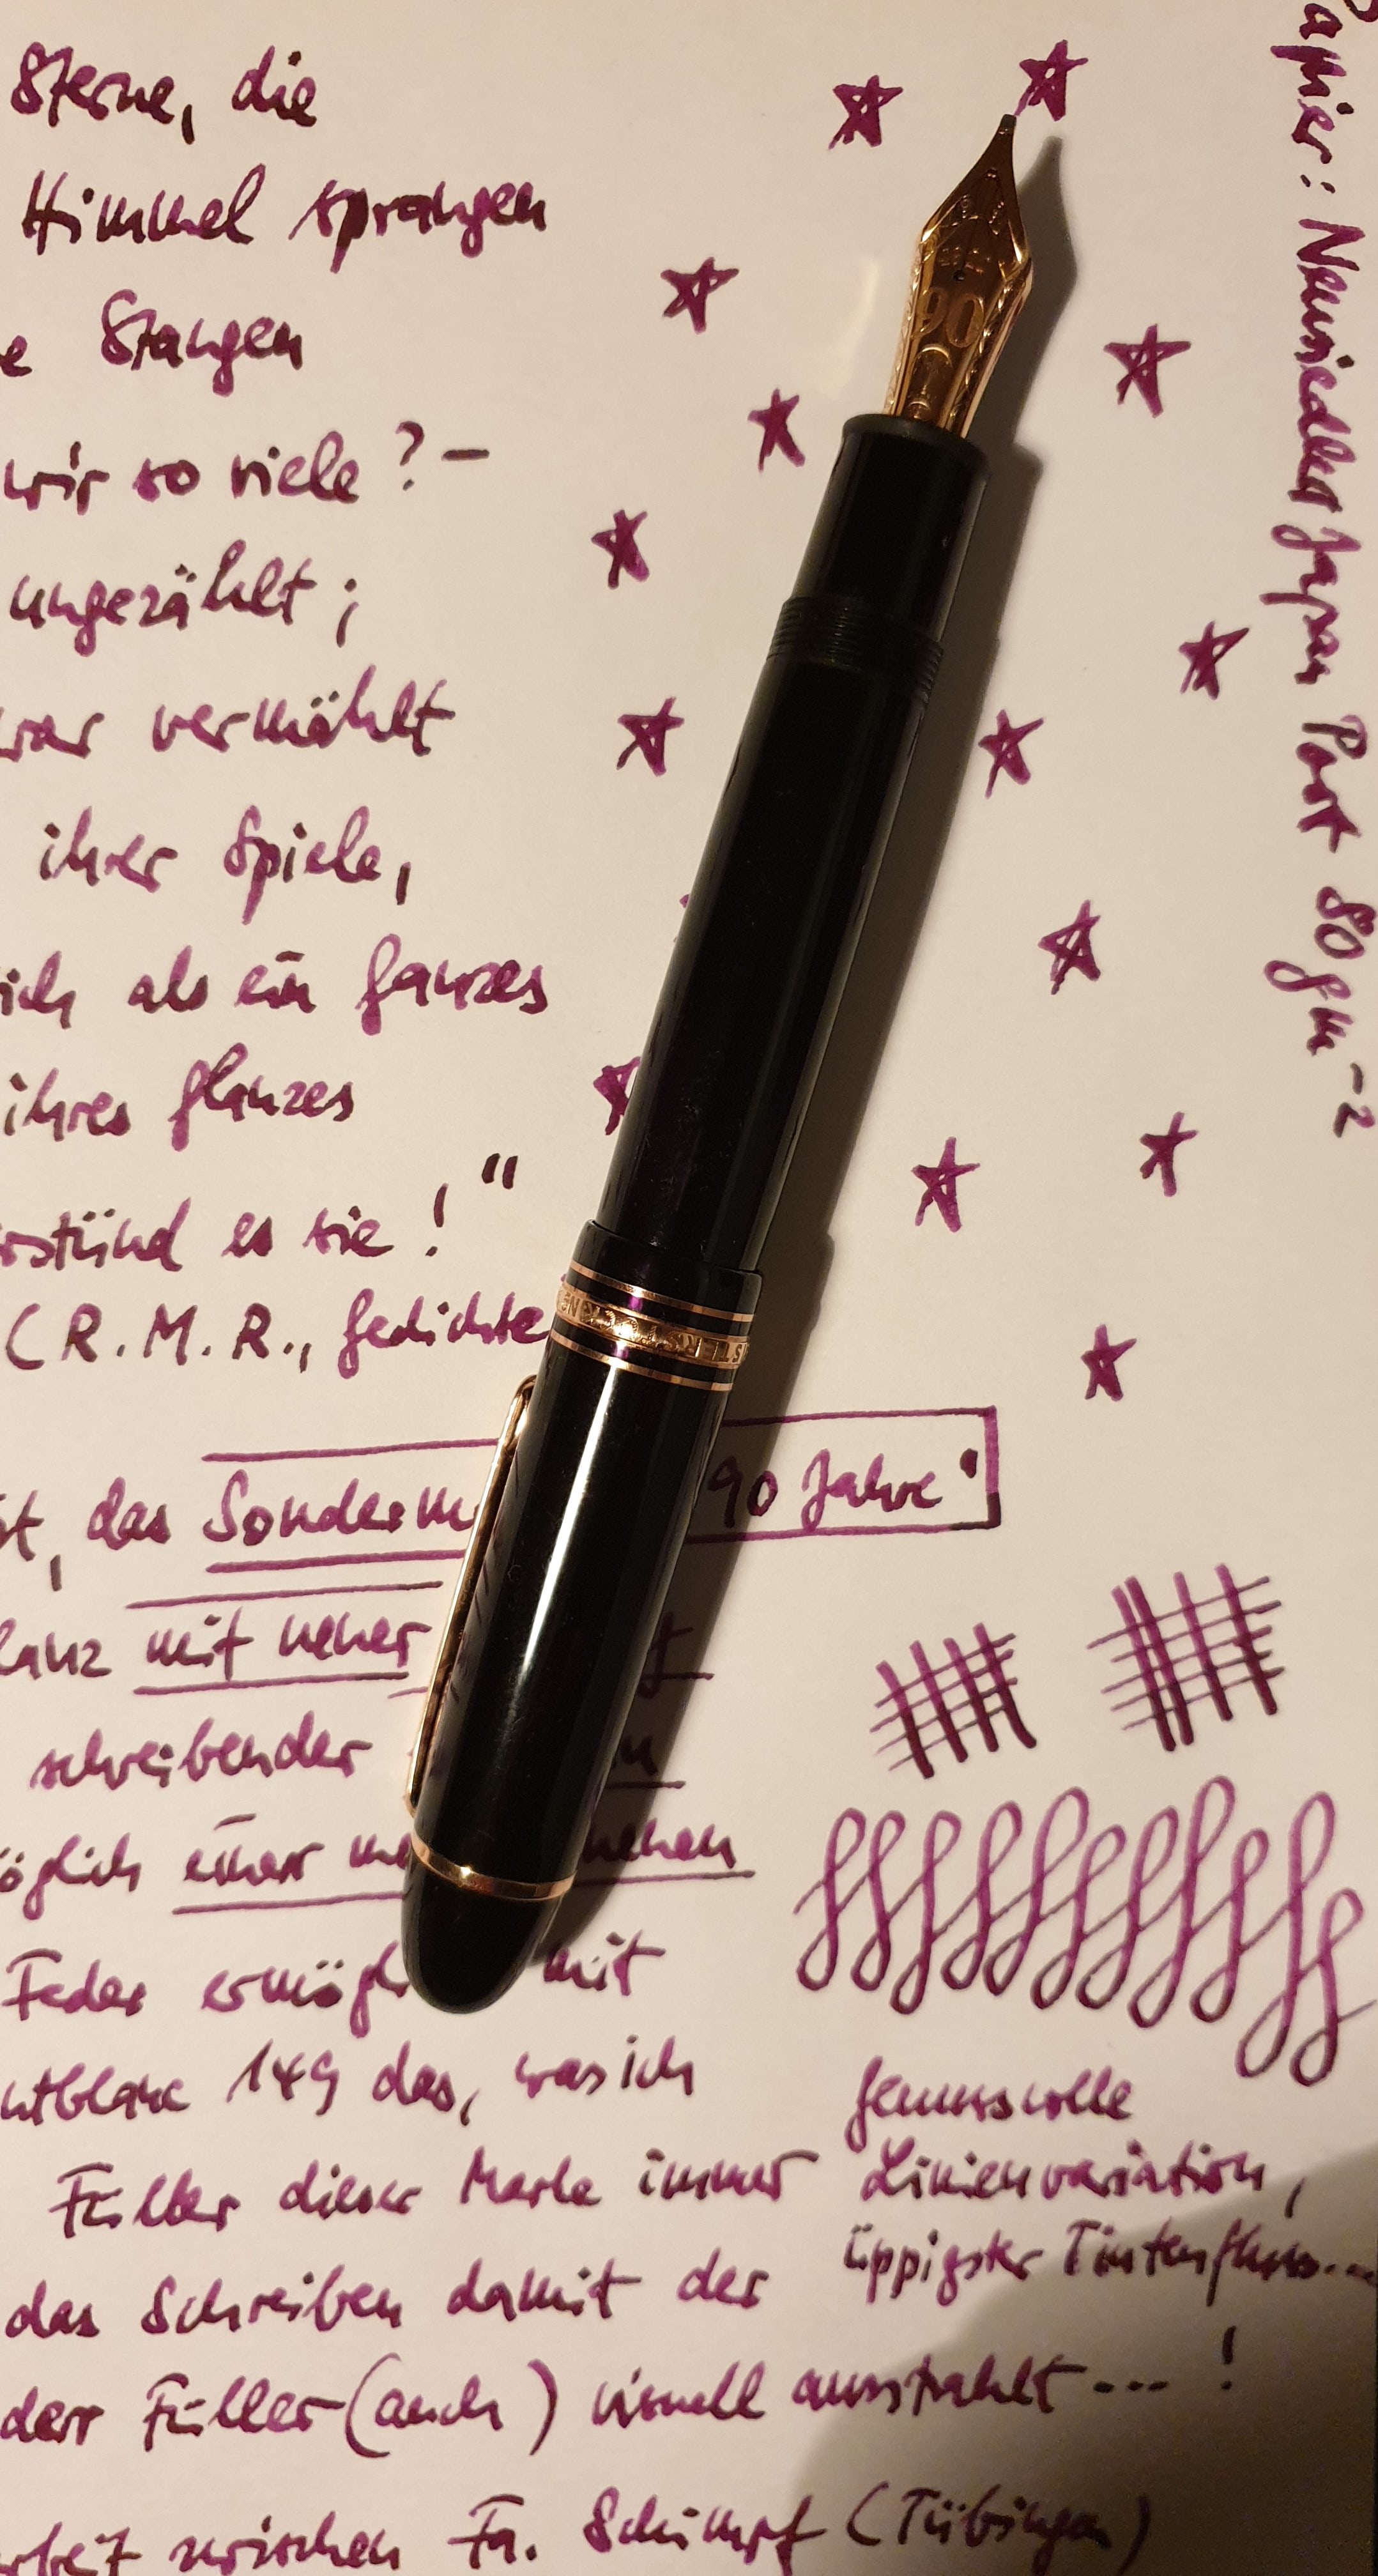 Sterne, die
Himmel sprangen
e Stangen
wir so viele ? –
ungezählt ;
war vermählt
ihrer Spiele,
ich als ein Ganzes
ihres Glanzes
rstünd es sie ! "
( R. M. R., Gedichte
st, das Sonderm 90 Jahre"
lanz mit neuer
schreibender
öglich einer nehen
Feder ermögl mit
ntblanc 149 das, was ich
Füller dieser Marke immer
das Schreiben damit der
der Füller (auch) visuell ausstrahlt --- !
rbeit zwischen Fa. Schimpf (Tübingen)
genussvolle
Linienvariation,
üppigster Tintenfluss...
Papier : Neusiedler Japan Post 80 g m⁻²
90